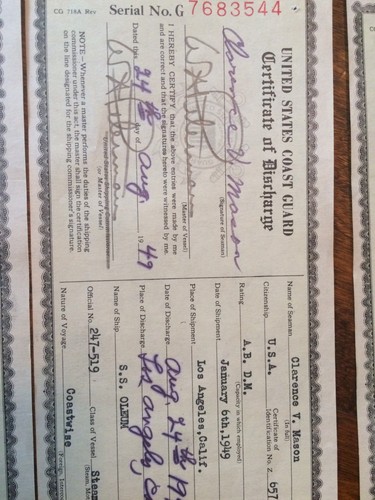 CG 718A Rev
Serial No. G 7683544
UNITED STATES COAST GUARD
Certificate of Discharge
Clarence V. Mason
(Signature of Seaman)
(Master of Vessel)
I HEREBY CERTIFY that the above entries were made by me
and are correct and that the signatures hereto were witnessed by me.
Dated this 24th day of Aug, 1949
(or Master of Vessel)
NOTE.—Whenever a master performs the duties of the shipping
commissioner under this act, the master shall sign the certification
on the line designated for the shipping commissioner's signature.
Name of Seaman Clarence V. Mason
(In full)
Citizenship U.S.A. Certificate of
Identification No. Z. 657
Rating A.B. D.M.
(Capacity in which employed)
Date of Shipment January 6th, 1949
Place of Shipment Los Angeles, Calif.
Date of Discharge Aug. 24th 19
Place of Discharge Los Angeles, C
Name of Ship S.S. OLEUM
Official No. 247-519 Class of Vessel Steam
(Steam, Mo
Nature of Voyage Coastwise
(Foreign, Interco